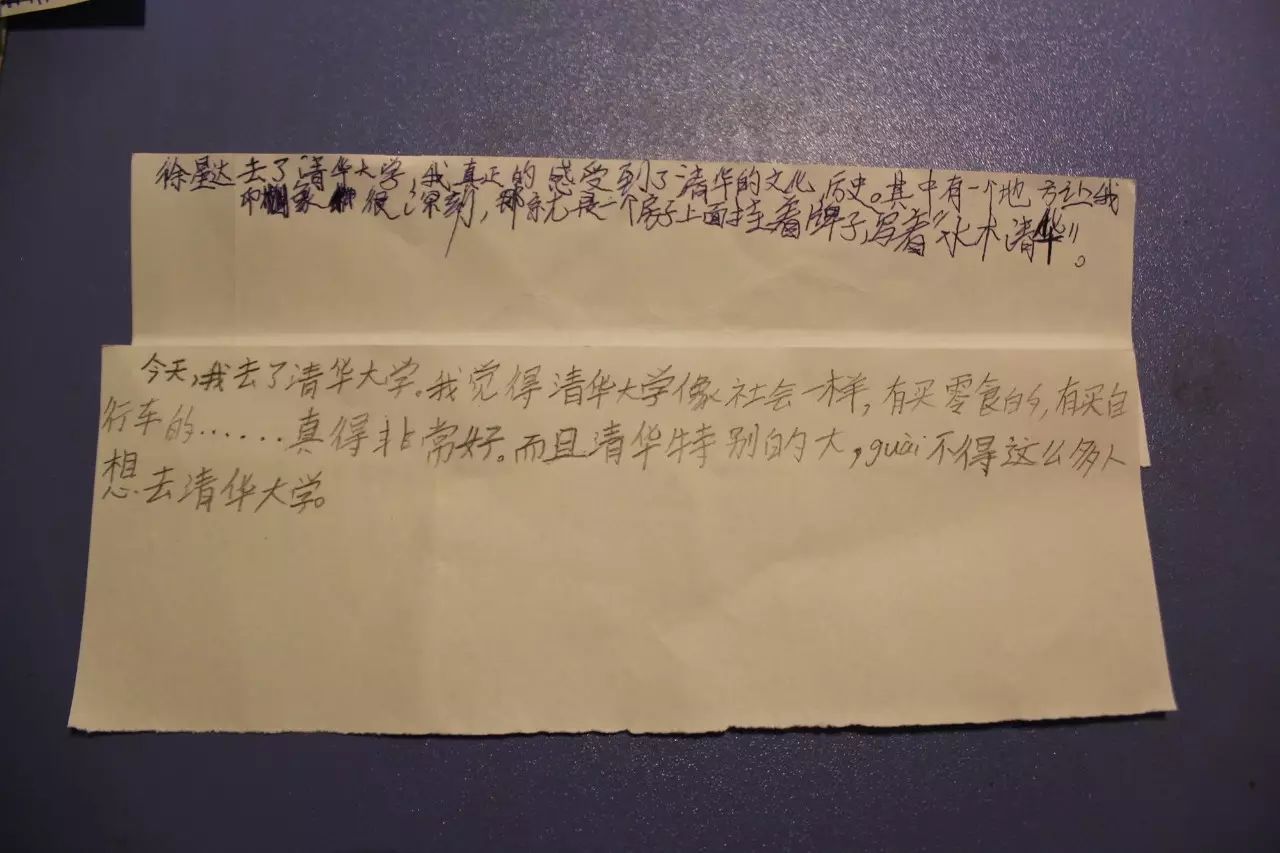 徐星达去了清华大学,我真正的感受到了清华的文化历史。其中有一个地方让我
印象很深刻,那就是一个房子上面挂着牌子,写着“水木清华”。
今天,我去了清华大学。我觉得清华大学像社会一样,有买零食的,有买自
行车的……真得非常好。而且清华特别的大,guài不得这么多人
想去清华大学。